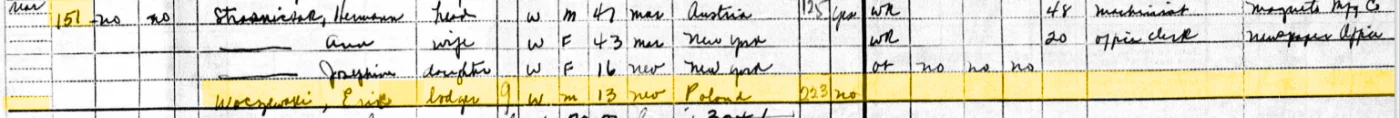 151 no no Hermann head W M 47 mar Austria 125 yes WK 48 machinist Magneto Mfg Co
wife W F 43 mar New York WK 20 office clerk newspaper office
Josephine daughter W F 16 nev New York ot no no no
Erik lodger 9 W m 13 nev Poland 223 no